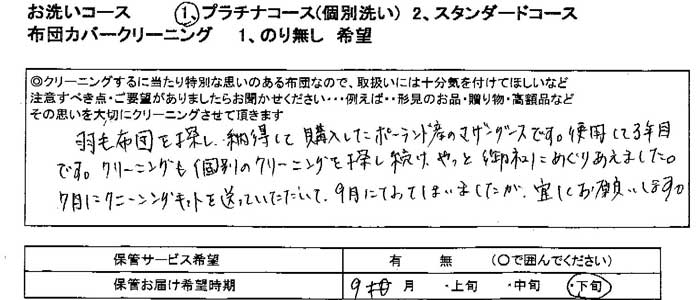 お洗いコース　①、プラチナコース(個別洗い) 2、スタンダードコース
布団カバークリーニング　1、のり無し 希望
◎クリーニングするに当たり特別な思いのある布団なので、取扱いには十分気を付けてほしいなど
注意すべき点・ご要望がありましたらお聞かせください・・・例えば・・形見のお品・贈り物・高額品など
その思いを大切にクリーニングさせて頂きます
羽毛布団を探し、納得して購入したポーランド産のマザーグースです。使用して3年目
です。クリーニングも個別のクリーニングを探し続け、やっと御社にめぐりあえました。
7月にクリーニングキットを送っていただいて、9月になってしまいましたが、宜しくお願いします。
保管サービス希望　有　無　(〇で囲んでください)
保管お届け希望時期　9 月 ・上旬 ・中旬 ・下旬